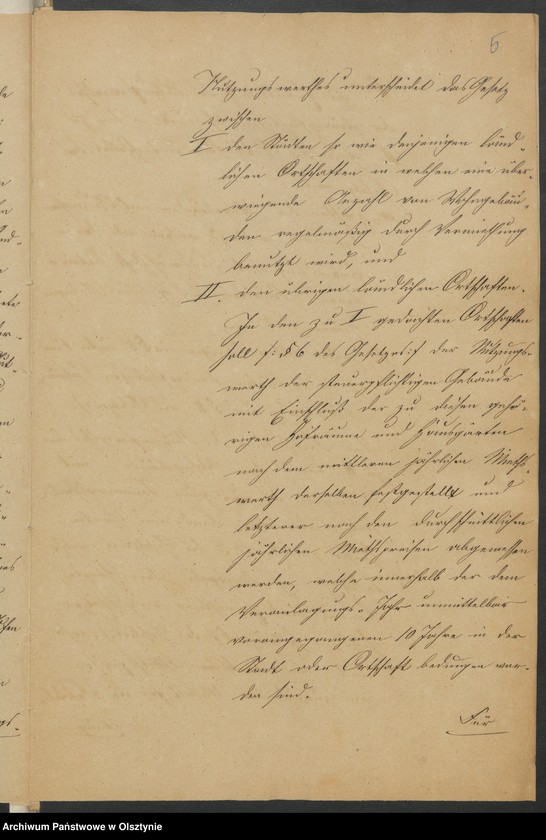 5
Nutzungswerthes unterscheidet das Gesetz
zwischen
I. den Städten so wie denjenigen länd-
lichen Ortschaften in welchen eine über-
wiegende Anzahl von Wohngebäu-
den regelmäßig durch Vermiethung
benutzt wird, und
II. den übrigen ländlichen Ortschaften.
In den zu I gedachten Ortschaften
soll /: § 6 des Gesetzes :/ der Nutzungs-
werth der steuerpflichtigen Gebäude
mit Einschluß der zu diesen gehö-
rigen Hofräume und Hausgärten
nach dem mittleren jährlichen Mieths-
werth derselben festgestellt und
letzterer nach den durchschnittlichen
jährlichen Miethspreisen abgemessen
werden, welche innerhalb der dem
Veranlagungs-Jahr unmittelbar
vorangegangenen 10 Jahre in der
Stadt oder Ortschaft bedungen wor-
den sind.
Für
Archiwum Państwowe w Olsztynie